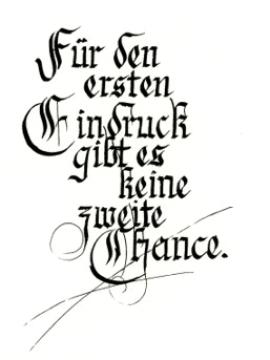 Für den
ersten
Eindruck
gibt es
keine
zweite
Chance.